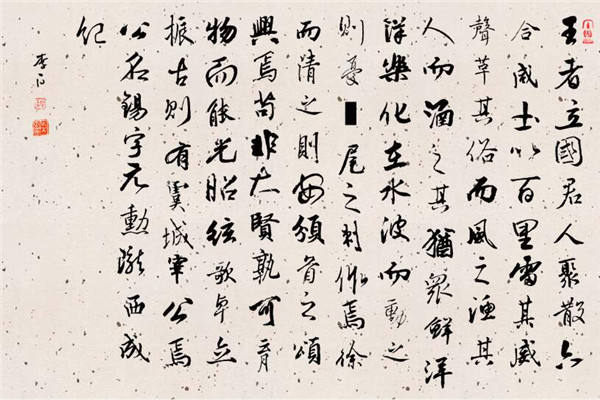 王者立國君人聚散六
合咸土以百里雷其威
聲革其俗而風之漁其
人而涵之其猶眾鮮洋
洋樂化在水波而動之
則憂■尾之刺作焉徐
而清之則安頒首之頌
興焉苟非大賢孰可育
物而能光昭絃歌卓立
振古則有虞城宰公焉
公名錫字元勳隴西成
紀